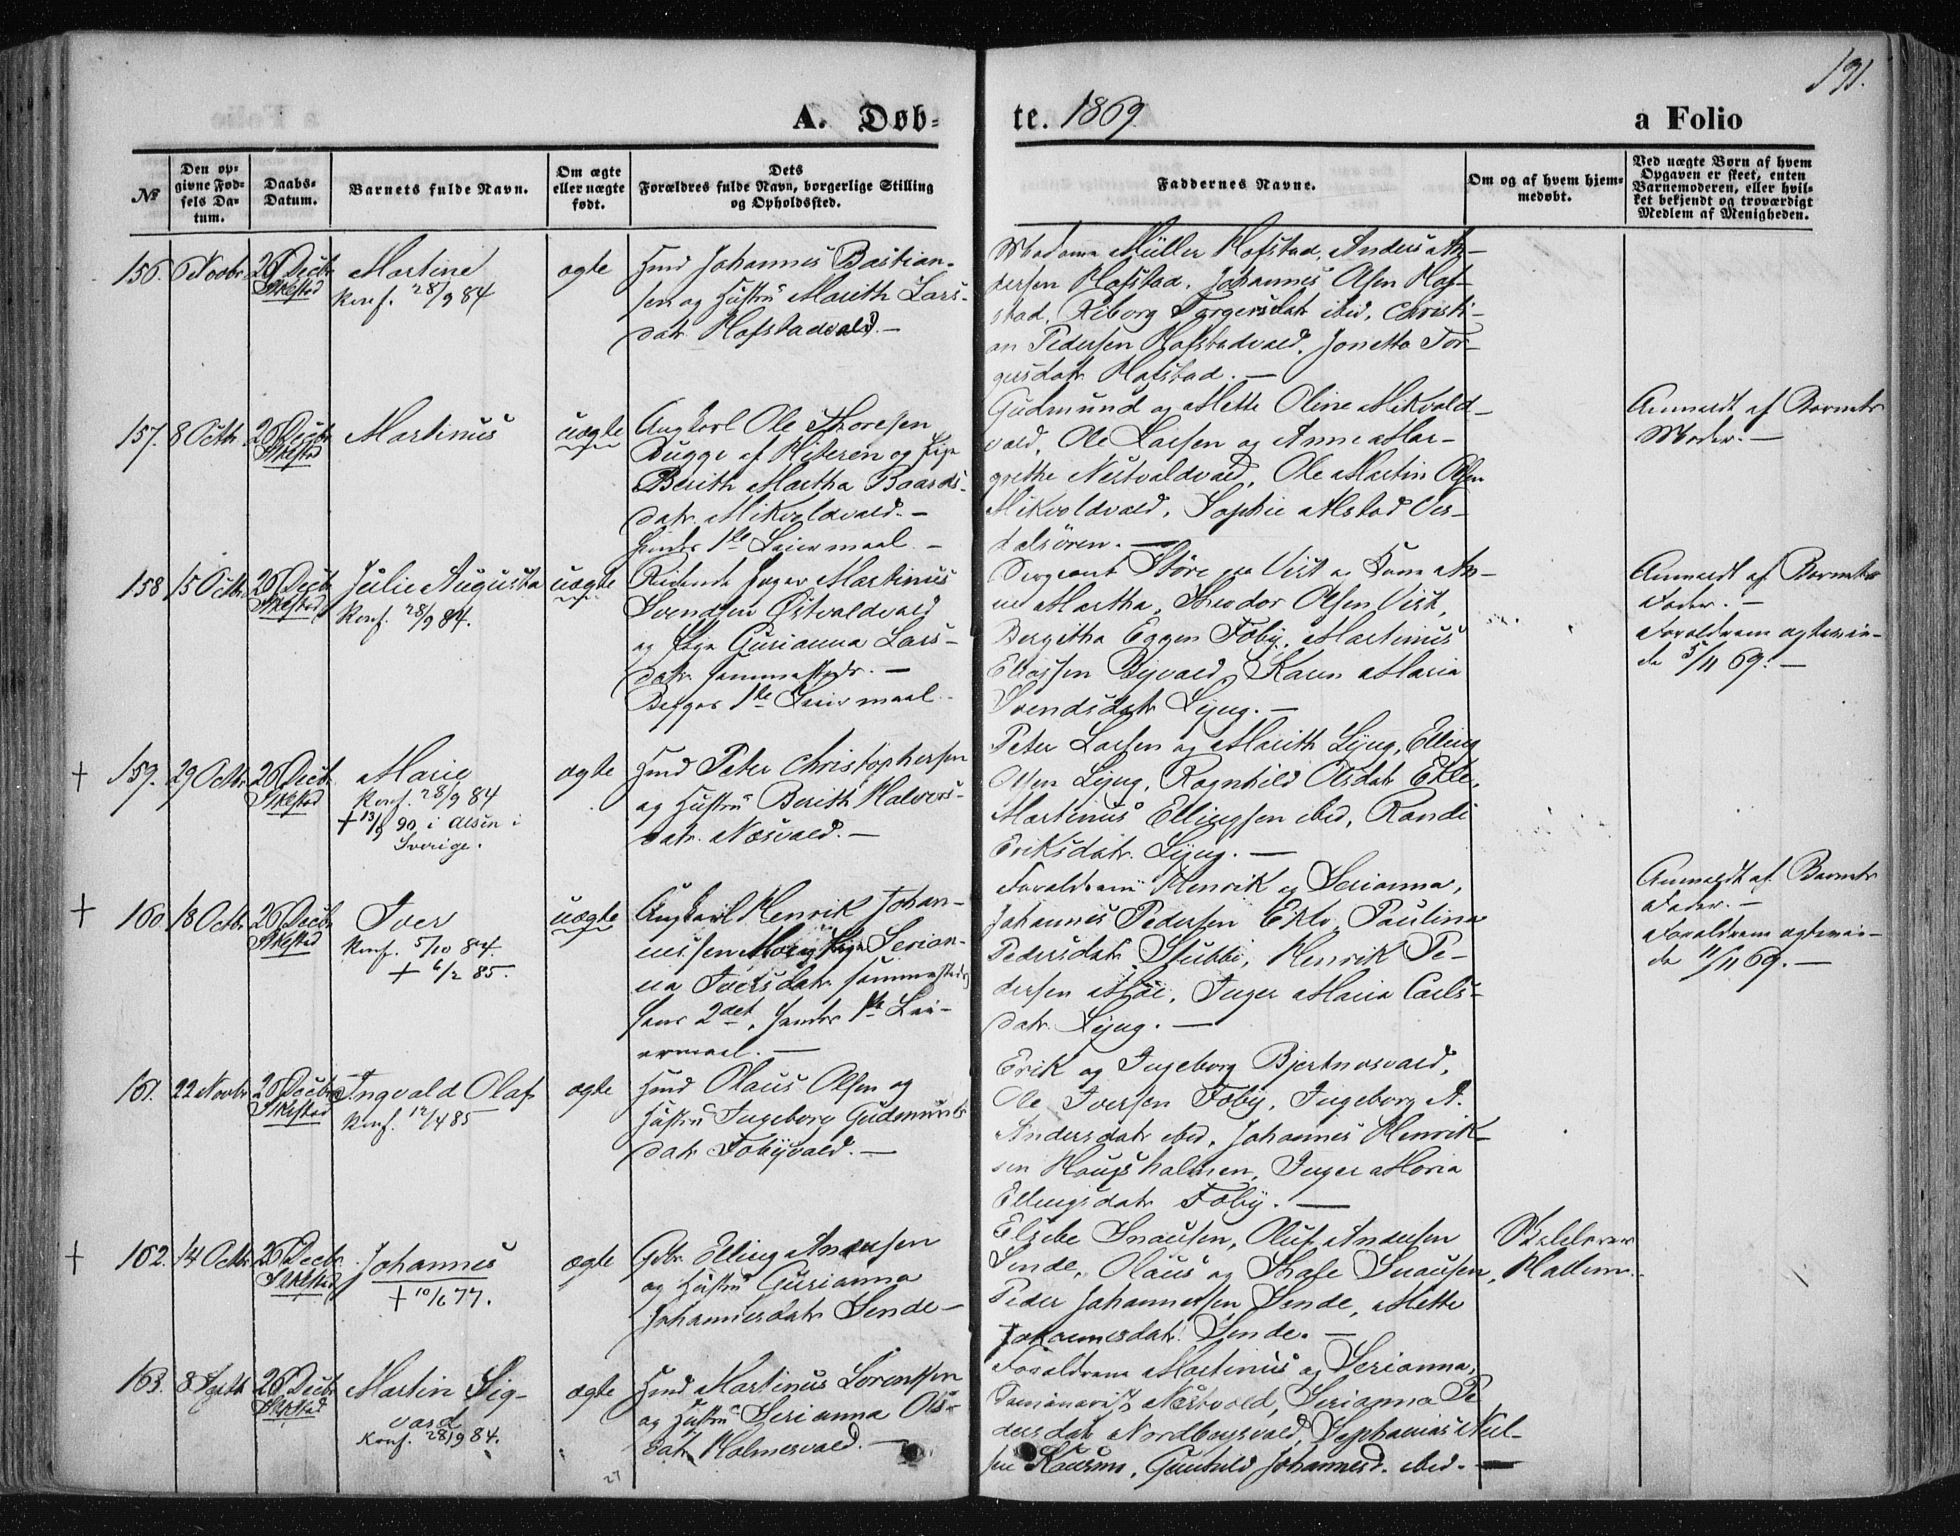 191.
A. Døb-
te. 1869.
a Folio
№
Den op-
givne Fød-
sels Da-
tum.
Daabs-
Datum.
Barnets fulde Navn.
Om ægte
eller uægte
født.
Dets
Forældres fulde Navn, borgerlige Stilling
og Opholdssted.
Faddernes Navne.
Om og af hvem hjem-
medøbt.
Ved uægte Børn af hvem
Opgaven er skeet, enten
Barnemoderen, eller hvil-
ket bekjendt og troværdigt
Medlem af Menigheden.
156.
Novbr
26 Decbr
Martine
Konf. 28/9 84
ægte
Hmd Johannes Bastian-
sen og Hustru Marith Lars-
datr Hofstadvald. —
Madame Müller Hofstad, Anders An-
dersen Hofstad, Johannes Olsen Hof-
stad, Riborg Torgersdatr ibid, Christi-
an Pedersen Hofstadvald, Jonetta Tor-
gersdatr Hofstad. —
157.
8 Octbr
26 Decbr
Martinus
uægte
Ungkarl Ole Thoresen
Dugge af Hiteren og Pige
Berith Martha Baards-
datr Mikvoldvald. —
hendes 1ste Leiermaal. —
Gudmund og Mette Oline Mikvold-
vald, Ole Larsen og Anne Mar-
grethe Nestvaldvald, Ole Martin Olsen
Mikvoldvald, Sophie Alstad Ver-
dalsøren. —
Anmeldt af Barnets
Moder. —
158
15 Octbr
26 Decbr
Julie Augusta
Konf. 28/9 84.
uægte
Ridende Jæger Martinus
Svendsen Østvaldvald
og Pige Gurianna Lars-
datr sammestedr. —
Begges 1ste Leiermaal. —
Sergeant Støre Vist
Martha, Theodor Olsen Vist,
Bergitha Eggen Foby, Martinus
Eliassen Byvald, Karen Maria
Svendsdatr Lyng. —
Anmeldt af Barnets
Fader. —
Forældrene ægtevie-
de 5/11 69. —
+ 159.
29 Octbr
26 Decbr
Marie
Konf. 28/9 84
+ 13/9 90 i Alsen i
Sverige.
ægte
Hmd Peter Christophersen
og Hustru Berith Halvors-
datr Næsvald. —
Peter Larsen og Marith Lyng, Elling
Olsen Lyng, Ragnhild Olsdatr Ekle,
Martinus Ellingsen ibid, Randi
Eriksdatr Lyng. —
+ 160.
18 Octbr
26 Decbr
Iver
Konf. 5/10 84.
+ 6/2 85.
uægte
Ungkarl Henrik Johan-
nessen og Pige Serian-
na Iversdatr sammesteds
hans 2det, hendes 1ste Lei-
ermaal. —
Forældrene Henrik og Serianna,
Johannes Pedersen Eklo, Paulina
Pedersdatr Stubbe, Henrik Pe-
dersen Moe, Inger Maria Carls-
datr Lyng. —
Anmeldt af Barnets
Fader. —
Forældrene ægtevie-
de 11/11 69. —
161.
22 Novbr
26 Decbr
Ingvald Olaf
Konf. 12/4 85
ægte
Hmd Olaus Olsen og
Hustru Ingeborg Gudmunds-
datr Fobyvald. —
Erik og Ingeborg Bjertnosvald,
Ole Iversen Foby, Ingeborg A.
Andersdatr ibid, Johannes Henrik-
sen Haugsholmen, Inger Maria
Ellingsdatr Foby. —
+ 162.
14 Octbr
26 Decbr
Johannes
+ 10/6 77.
ægte
Gbr. Elling Andersen
og Hustru Gurianna
Johannesdatr Sende —
Elsebe Snausen, Oluf Andersen
Sende, Olaus og Snausen,
Peder Johannessen Sende, Mette
Johannesdatr Sende. —
Hallem.
163.
8 Septb
26 Decbr
Martin Sig-
vard
Konf. 28/9 84.
ægte
Hmd Martinus Lorentsen
og Hustru Serianna Ols-
datr Holmesvald. —
Forældrene Martinus og Serianna,
Nestvold, Serianna Pe-
dersdatr Nordbergsvald, Sephanias Niel-
sen Kausmo, Gunhild Johannesd. ibid. —
27